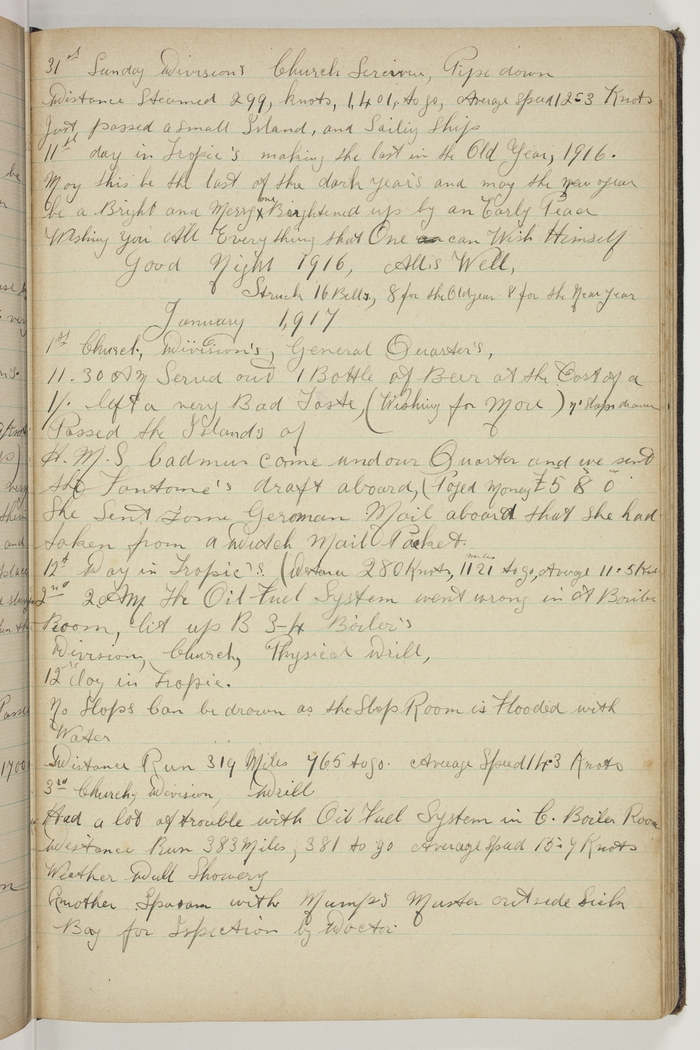 31st Sunday Division's Church Serivive, Pipe down
Distance Steamed 299, knots, 1,401, to go, Average Speed 12-3 Knots
Just passed a small Island, and Sailig Ship
11th day in Tropic's making the last in the Old Year, 1916.
May this be the last of the dark year's and may the new year
be a Bright and Merry one Brightened up by an Early Peace
Wishing You All Everything that One can Wish Himself
Good Night 1916, All is Well,
Struck 16 Bells, 8 for the Old year 8 for the New Year
January 1,917
1st Church, Division's, General Quarter's,
11.30 AM Served out 1 Bottle of Beer at the Cost of a
1/- left a very Bad Taste, (Wishing for More) no slops drawn
Passed the Islands of
H.M.S Cadmus come undour Quarter and we sent
the Fantome's draft aboard, (Payed Money £5 8 0
She Sent Some German Mail aboard that She had
taken from a Dutch Mail Packet.
12th Day in Tropic's (Distance 280 Knots, 1121 miles to go, Average 11.5 Knots
2nd 2 AM The Oil Fuel System went wrong in A Boiler
Room, lit up B 3-4 Boiler's
Division, Church, Physical Drill,
12 day in Tropic.
No Slops Can be drawn as the Slop Room is Flooded with
Water
Distance Run 319 Miles 765 to go. Average Speed 14.3 Knots
3rd Church, Division, Drill
Had a lot of trouble with Oil Fuel System in C. Boiler Room
Distance Run 383 Miles, 381 to go Average Speed 15-9 Knots
Weather Dull Showery
Another with Mumps Muster outside Sick
Bay for Ispection by Doctor